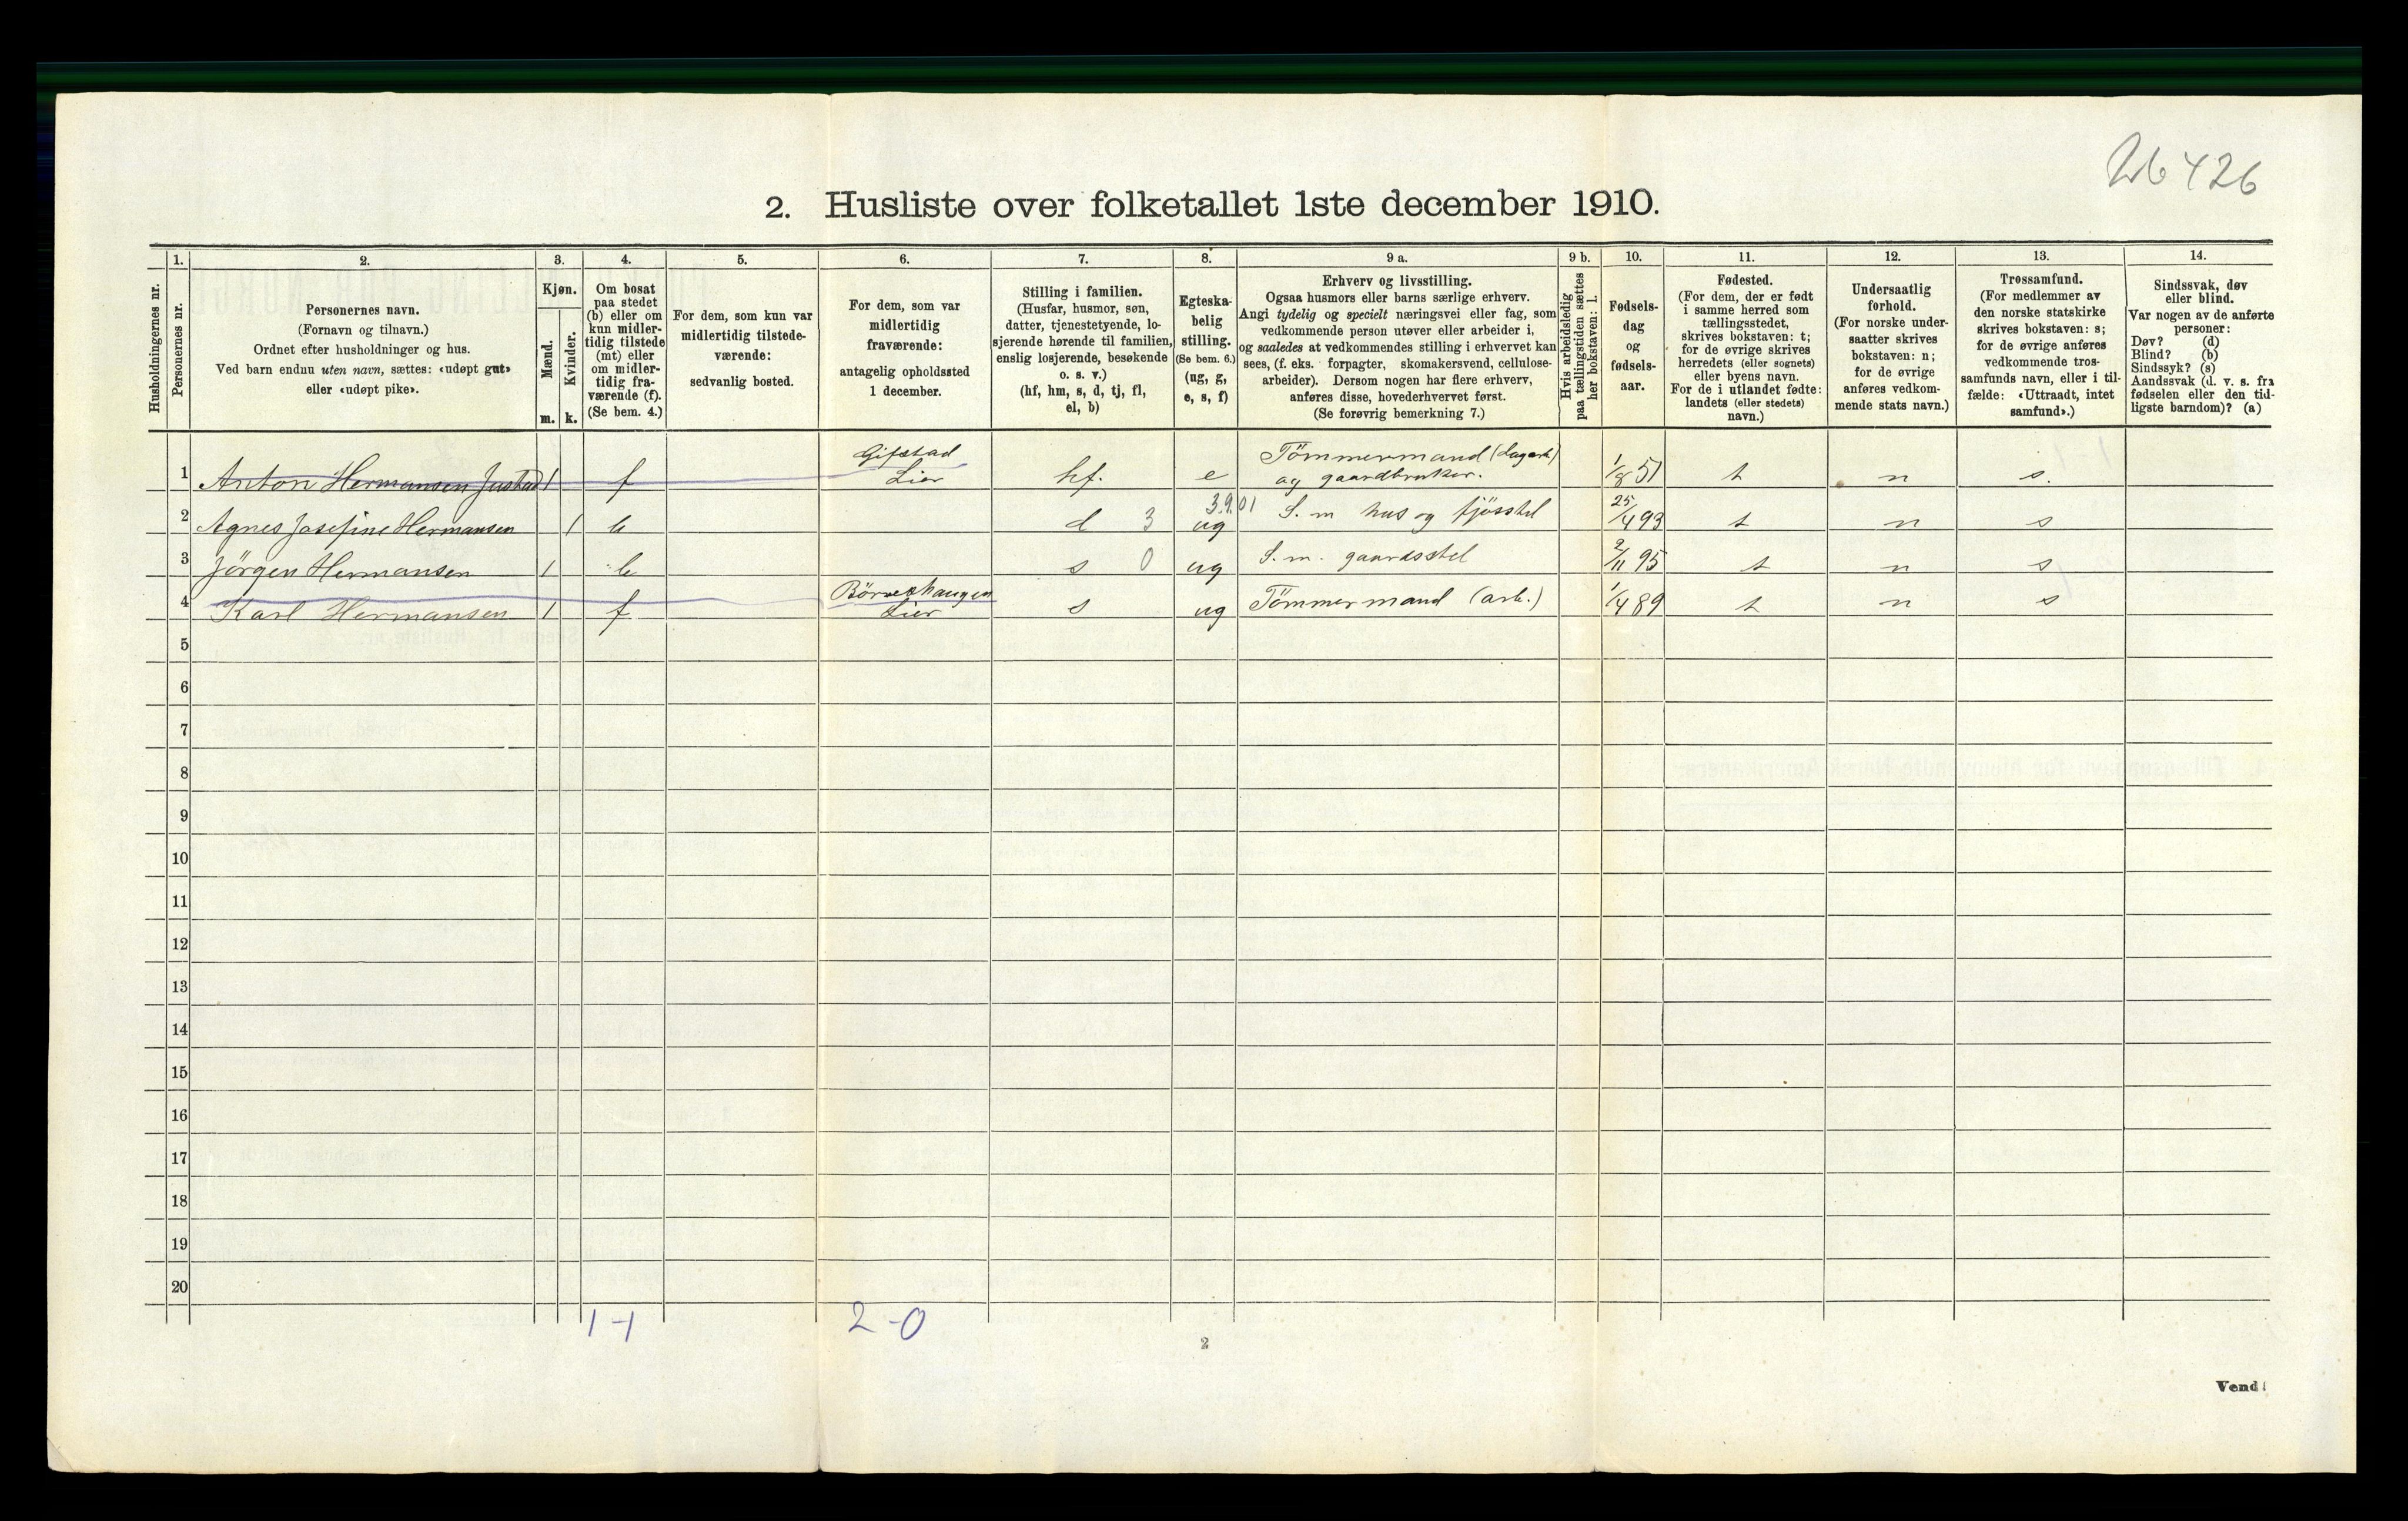 426
2. Husliste over folketallet 1ste december 1910.
Husholdningernes nr.
1.
Personernes nr.
2.
Personernes navn.
(Fornavn og tilnavn.)
Ordnet efter husholdninger og hus.
Ved barn endnu uten navn, sættes: «udøpt gut»
eller «udøpt pike».
3.
Kjøn.
Mænd.
m.
Kvinder.
k.
4.
Om bosat
paa stedet
(b) eller om
kun midler-
tidig tilstede
(mt) eller
om midler-
tidig fra-
værende (f).
(Se bem. 4.)
5.
For dem, som kun var
midlertidig tilstede-
værende:
sedvanlig bosted.
6.
For dem, som var
midlertidig
fraværende:
antagelig opholdssted
1 december.
7.
Stilling i familien.
(Husfar, husmor, søn,
datter, tjenestetyende, lo-
sjerende hørende til familien,
enslig losjerende, besøkende
o. s. v.)
(hf, hm, s, d, tj, fl,
el, b)
8.
Egteska-
belig
stilling.
(Se bem. 6.)
(ug, g,
e, s, f)
9 a.
Erhverv og livsstilling.
Ogsaa husmors eller barns særlige erhverv.
Angi tydelig og specielt næringsvei eller fag, som
vedkommende person utøver eller arbeider i,
og saaledes at vedkommendes stilling i erhvervet kan
sees, (f. eks. forpagter, skomakersvend, cellulose-
arbeider). Dersom nogen har flere erhverv,
anføres disse, hovederhvervet først.
(Se forøvrig bemerkning 7.)
9 b.
Hvis arbeidsledig
paa tællingstiden sættes
her bokstaven: l.
10.
Fødsels-
dag
og
fødsels-
aar.
11.
Fødested.
(For dem, der er født
i samme herred som
tællingsstedet,
skrives bokstaven: t;
for de øvrige skrives
herredets (eller sognets)
eller byens navn.
For de i utlandet fødte:
landets (eller stedets)
navn.)
12.
Undersaatlig
forhold.
(For norske under-
saatter skrives
bokstaven: n;
for de øvrige
anføres vedkom-
mende stats navn.)
13.
Trossamfund.
(For medlemmer av
den norske statskirke
skrives bokstaven: s;
for de øvrige anføres
vedkommende tros-
samfunds navn, eller i til-
fælde: «Uttraadt, intet
samfund».)
14.
Sindssvak, døv
eller blind.
Var nogen av de anførte
personer:
Døv? (d)
Blind? (b)
Sindssyk? (s)
Aandssvak (d. v. s. fra
fødselen eller den tid-
ligste barndom)? (a)
1 Anton Hermansen Justad 1 f Gifstad Lier hf. e Tömmermand (dagarb) og gaardbruker. 1/8 51 t n s.
2 Agnes Josefine Hermansen 1 b d 3 3.9.01 ug S. m hus og fjösstel 25/4 93 t n s
3 Jörgen Hermansen 1 b s 0 ug S. m. gaardsstel 2/11 95 t n s
4 Karl Hermansen 1 f Lier s ug Tömmermand (arb.) 1/4 89 t n s
5
6
7
8
9
10
11
12
13
14
15
16
17
18
19
20
1-1 2-0
2
Vend!